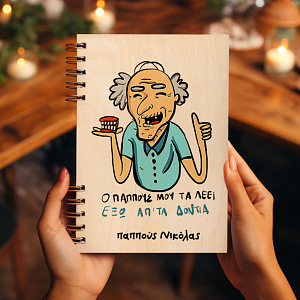 Ο ΠΑΠΠΟΥΣ ΜΟΥ ΤΑ ΛΕΕΙ
ΕΞΩ ΑΠ'ΤΑ ΔΟΝΤΙΑ
παππούς Νικόλας